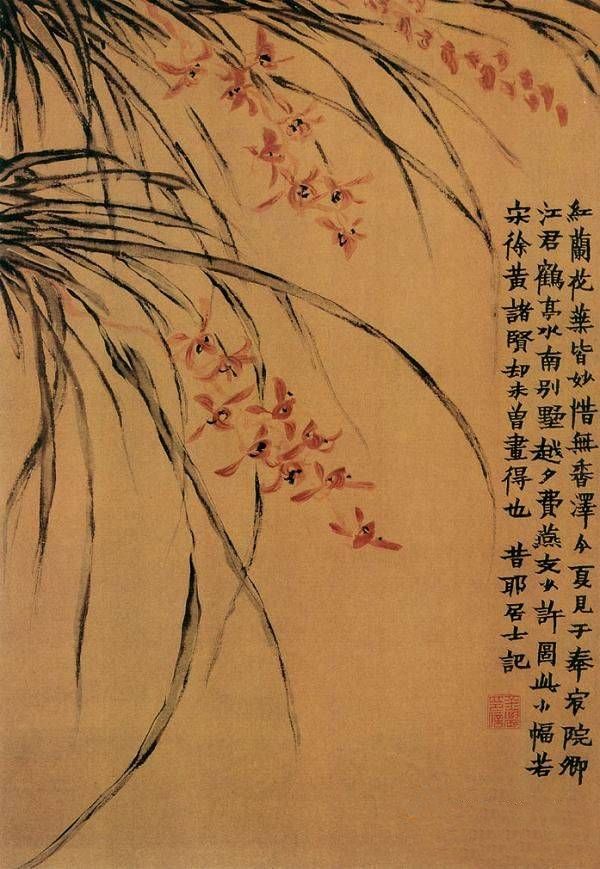 紅蘭花葉皆妙惜無香澤今夏見于奉宸院卿
江君鶴亭水南别墅越夕費燕支少許圖此小幅若
宋徐黃諸賢却未曾畫得也 昔耶居士記